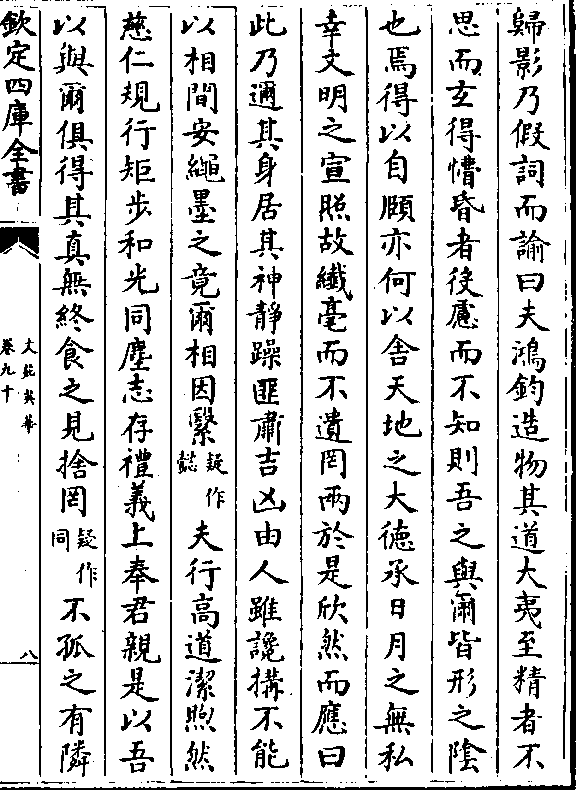 歸影乃假詞而諭曰夫鴻鈞造物其道大夷至精者不
思而玄得懵昏者役慮而不知則吾之與爾皆形之陰
也焉得以自頤亦何以舎天地之大徳承日月之無私
幸文明之宣照故纖毫而不遺罔兩於是欣然而應曰
此乃邇其身居其神靜躁匪肅吉凶由人雖讒搆不能
以相間安繩墨之竟爾相因繄疑作懿夫行髙道潔煦然
慈仁規行矩步和光同塵志存禮義上奉君親是以吾
以與爾俱得其真無終食之見捨罔疑作同不孤之有隣
欽定四庫全書
文苑英華
卷九十
八